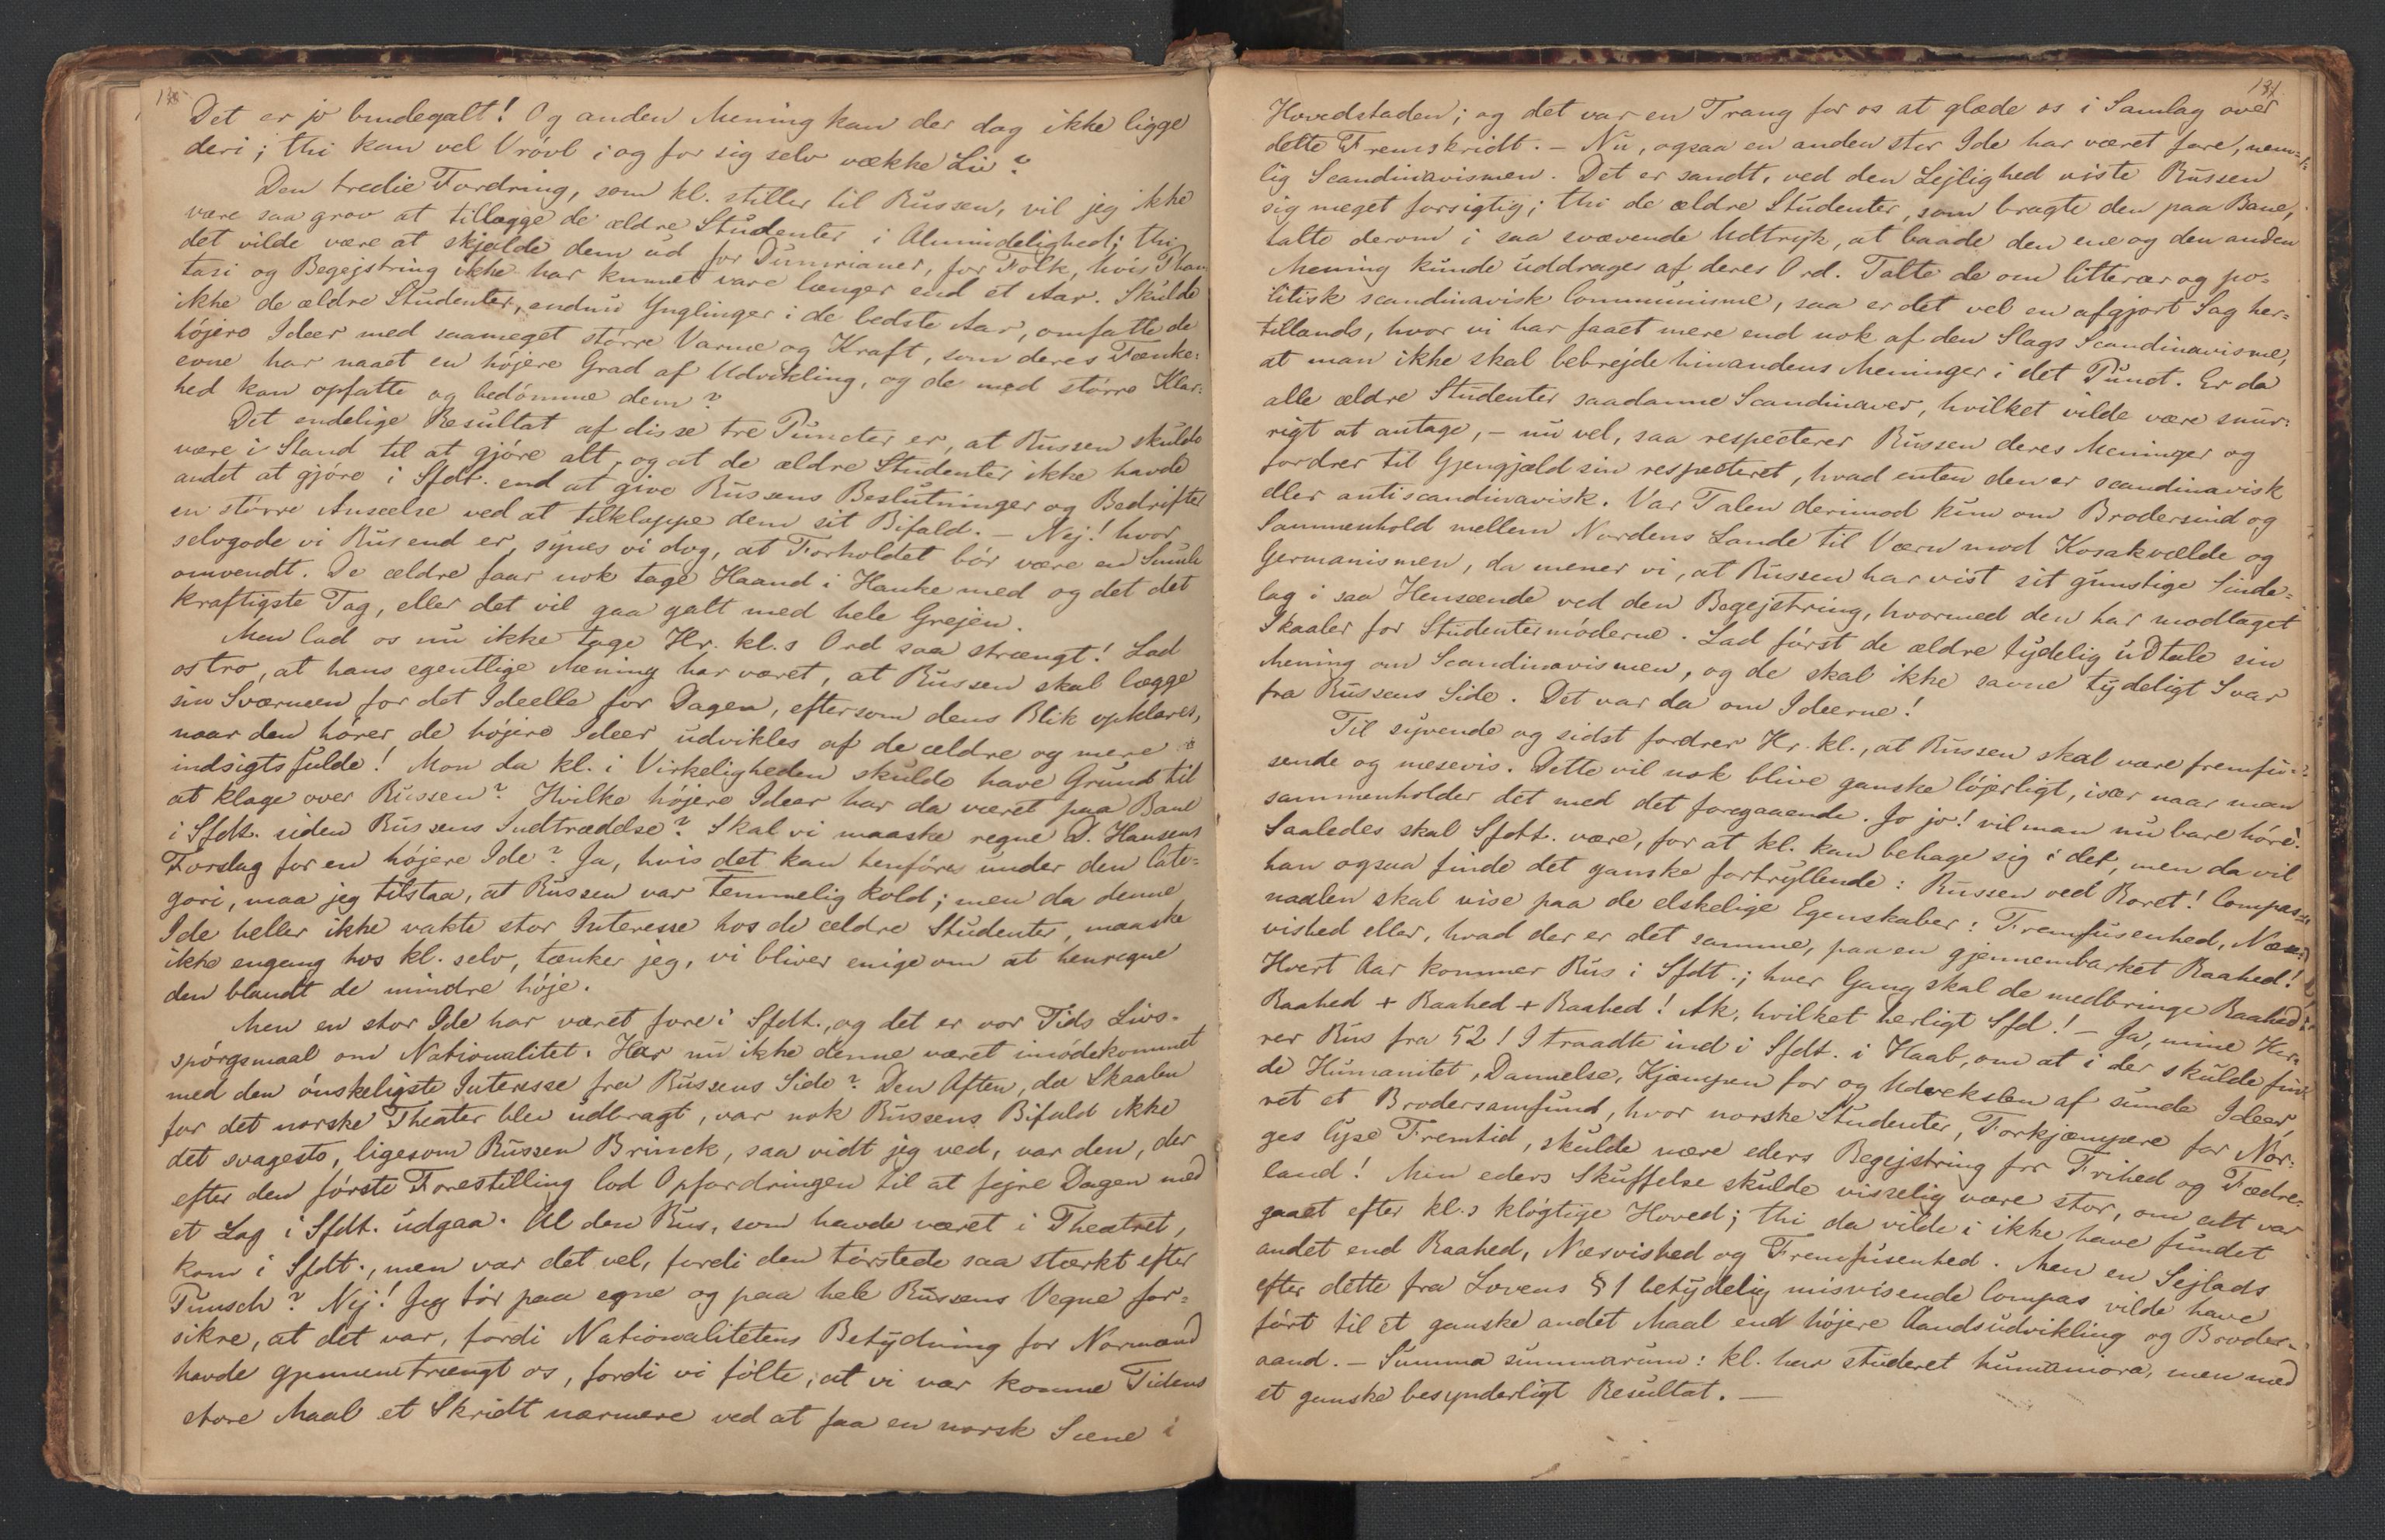 Det er jo bundegalt! Og anden Mening kan der dog ikke ligge
deri; thi kan vel Vrövl i og for sig selv vække Liv?
Den tredie Fordring, som kl. stiller til Russen, vil jeg ikke
være saa grov at tillægge de ældre Studenter i Almindelighed; thi
det vilde være at skjælde dem ud for Dumrianer, for Folk, hvis Phan
tasi og Begejstring ikke har kunnet vare længer end et Aar. Skulde
ikke de ældre Studenter, endnu Ynglinger i de bedste Aar, omfatte de
höjere Ideer med saameget större Varme og Kraft, som deres Tænke-
evne har naaet en höjere Grad af Udvikling, og de med större Klar-
hed kan opfatte og bedömme dem?
Det endelige Resultat af disse tre Puncter er, at Russen skulde
være i Stand til at gjöre alt, og at de ældre Studenter ikke havde
andet at gjöre i Sfdt. end at give Russens Beslutninger og Bedrifter
en större Anseelse ved at tilklappe dem sit Bifald. – Nej! hvor
selvgode vi Rus end er, synes vi dog, at Forholdet bör være en Smule
omvendt. De ældre faar nok tage Haand i Hanke med og det det
kraftigste Tag, eller det vil gaa galt med hele Grejen.
Men lad os nu ikke tage Hr. kl.s Ord saa strængt! Lad
os tro, at hans egentlige Mening har været, at Russen skal lægge
sin Sværmen for det Ideelle for Dagen, eftersom dens Blik opklares,
naar den hörer de höjere Ideer udvikles af de ældre og mere
indsigtsfulde! Mon da kl. i Virkeligheden skulde have Grund til
at klage over Russen? Hvilke höjere Ideer har da været paa Bane
i Sfdt. siden Russens Indtrædelse? Skal vi maaske regne D. Hansens
Forslag for en höjere Ide? Ja, hvis det kan henföres under den Cate-
gori, maa jeg tilstaa, at Russen var temmelig kold; men da denne
Ide heller ikke vakte stor Interesse hos de ældre Studenter, maaske
ikke engang hos kl. selv, tænker jeg, vi bliver enige om at henregne
den blandt de mindre höje.
Men en stor Ide har været fore i Sfdt., og det er vor Tids Livs-
spörgsmaal om Nationalitet. Har nu ikke denne været imödekommet
med den önskeligste Interesse fra Russens Side? Den Aften, da Skaalen
for det norske Theater blev udbragt, var nok Russens Bifald ikke
det svageste, ligesom Russen Brinck, saa vidt jeg ved, var den, der
efter den förste Forestilling lod Opfordringen til at fejre Dagen med
et Lag i Sfdt. udgaa. Al den Rus, som havde været i Theatret,
kom i Sfdt., men var det vel, fordi den törstede saa stærkt efter
Punsch? Nej! Jeg tör paa egne og paa hele Russens Vegne for-
sikre, at det var, fordi Nationalitetens Betydning for Normænd
havde gjennemtrængt os, fordi vi fölte, at vi var komne Tidens
store Maal et Skridt nærmere ved at faa en norsk Scene i
131.
Hovedstaden; og det var en Trang for os at glæde os i Samlag over
dette Fremskridt. – Nu, ogsaa en anden stor Ide har været fore, nem-
lig Scandinavismen. Det er sandt, ved den Lejlighed viste Russen
sig meget forsigtig; thi de ældre Studenter, som bragte den paa Bane,
talte derom i saa svævende Udtryk, at baade den ene og den anden
Mening kunde uddrages af deres Ord. Talte de om litterær og po-
litisk scandinavisk Communisme, saa er det vel en afgjort Sag her-
tillands, hvor vi har faaet mere end nok af den Slags Scandinavisme,
at man ikke skal bebrejde hinandens Meninger i det Punct. Er da
alle ældre Studenter saadanne Scandinaver, hvilket vilde være snur-
rigt at antage, – nu vel, saa respecterer Russen deres Meninger og
fordrer til Gjengjæld sin respecteret, hvad enten den er scandinavisk
eller antiscandinavisk. Var Talen derimod kun om Brodersind og
Sammenhold mellem Nordens Lande til Værn mod Kosakvælde og
Germanismen, da mener vi, at Russen har vist sit gunstige Sinde-
lag i saa Henseende ved den Begejstring, hvormed den har modtaget
Skaaler for Studentermöderne. Lad först de ældre tydelig udtale sin
Mening om Scandinavismen, og de skal ikke savne tydeligt Svar
fra Russens Side. Det var da om Ideerne!
Til syvende og sidst fordrer Hr. kl., at Russen skal være fremfu-
sende og næsevis. Dette vil nok blive ganske löjerligt, især naar man
sammenholder det med det foregaaende. Jo jo! vil man nu bare höre!
Saaledes skal Sfdt. være, for at kl. kan behage sig i det, men da vil
han ogsaa finde det ganske fortryllende: Russen ved Roret! Compas-
naalen skal vise paa de elskelige Egenskaber: Fremfusenhed, Næse-
vished eller, hvad der er det samme, paa en gjennembarket Raahed!
Hvert Aar kommer Rus i Sfdt.; hver Gang skal de medbringe Raahed:
Raahed + Raahed + Raahed! Ak, hvilket herligt Sfd.! – Ja, mine Her-
rer Rus fra 52! I traadte ind i Sfdt. i Haab, om at i der skulde fin-
de Humanitet, Dannelse, Kjæmpen for og Udvekslen af sunde Ideer,
ret et Brodersamfund, hvor norske Studenter, Forkjæmpere for Nor-
ges lyse Fremtid, skulde nære eders Begejstring for Frihed og Fædre-
land! Men eders Skuffelse skulde visselig være stor, om alt var
gaaet efter kl.s klögtige Hoved; thi da vilde i ikke have fundet
andet end Raahed, Næsvished og Fremfusenhed. Men en Sejlads
efter dette fra Lovens § 1 betydelig misvisende Compas vilde have
fört til et ganske andet Maal end höjere Aandsudvikling og Broder-
aand. – Summa summarum: kl. har studeret humaniora, men med
et ganske besynderligt Resultat. –